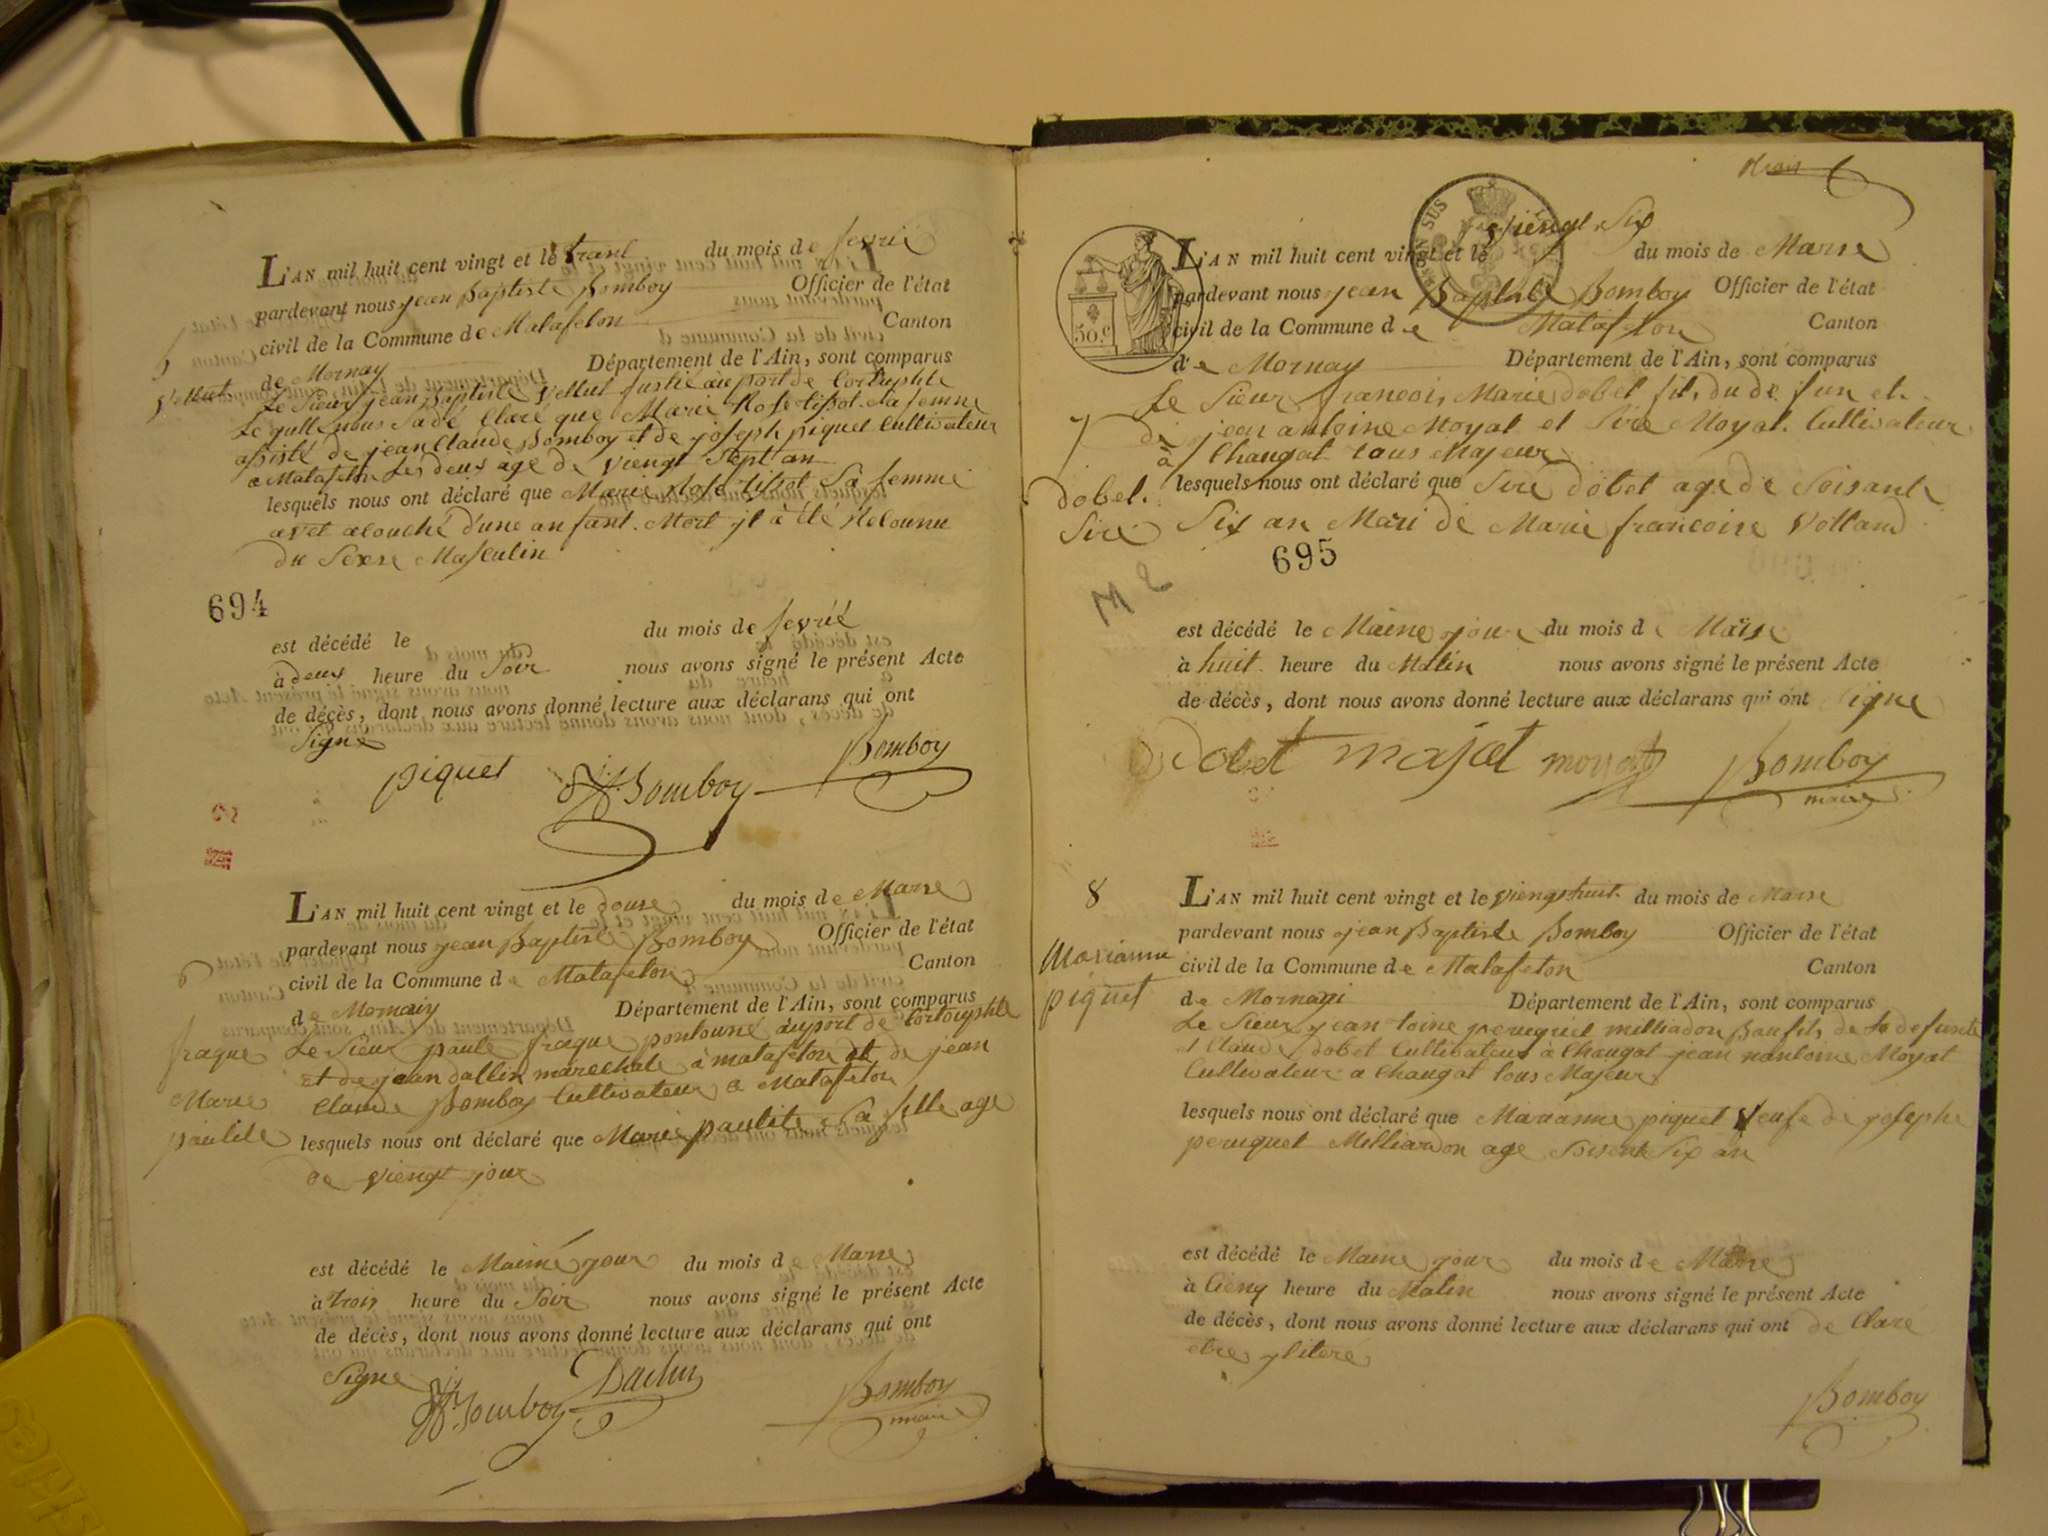 L'AN mil huit cent vingt et le trant du mois de fevrié
pardevant nous jean Baptiste Bomboy Officier de l'état
civil de la Commune de Matafelon Canton
de Mornay Département de l'Ain, sont comparus
5
Vellut
Le Sieur jean Baptiste Vellut
Le quelle nous Sa dé Claré que Marie Rose tissot Sa femme
assisté de jean Claude Bomboy et de joseph piquet Cultivateur
a Matafelon Les deux age de viengt Sept an
lesquels nous ont déclaré que Marie Rose tissot Sa femme
avet acouché d'une anfant Mort jl à été Relounu
du Sexse Masculin
694
est décédé le du mois de fevrié
à deux heure du Soir nous avons signé le présent Acte
de décès, dont nous avons donné lecture aux déclarans qui ont
Signe
piquet Bomboy Bomboy
L'AN mil huit cent vingt et le douse du mois de Marse
pardevant nous jean Baptiste Bomboy Officier de l'état
civil de la Commune de Matafelon Canton
de Mornaiy Département de l'Ain, sont comparus
6
fraque
Marie
paulite
Le Sieur paule fraque pontouné au port de
et de jean dallin marechale à matafelon et de jean
Claude Bomboy Cultivateur a Matafelon
lesquels nous ont déclaré que Marie paulite Sa fille age
de viengt jour
est décédé le Maime jour du mois de Marse
à trois heure du Soir nous avons signé le présent Acte
de décès, dont nous avons donné lecture aux déclarans qui ont
Signe
Bomboy Dadin Bomboy
maire
50 c
L'AN mil huit cent vingt et le viengt Six du mois de Marse
pardevant nous jean Baptiste Bomboy Officier de l'état
civil de la Commune de Matafelon Canton
de Mornay Département de l'Ain, sont comparus
7
dobet
Sire
Le Sieur francois Marie dobet fil du de fun et
de jean antoine Moyat et Sire Moyat Cultivateur
à Changat tous Majeur
lesquels nous ont déclaré que Sire dobet age de Soisante
Six an Mari de Marie francoise Volland
695
M 2
est décédé le Maime jour du mois de Marse
à huit heure du Matin nous avons signé le présent Acte
de décès, dont nous avons donné lecture aux déclarans qui ont Signe
Dobet majat moyat Bomboy
maire
8
Marianne
piquet
L'AN mil huit cent vingt et le viengt huit du mois de Marse
pardevant nous jean Baptiste Bomboy Officier de l'état
civil de la Commune de Matafelon Canton
de Mornayi Département de l'Ain, sont comparus
Le Sieur jean toine peruquet milliadon Baufils de La defunte
et Claude dobet Cultivateur à Changat jean nantoine Moyat
Cultivateur a Changat tous Majeur
lesquels nous ont déclaré que Marianne piquet Veufe de josephe
peruquet Milliardon age Soisente Six an
est décédé le Maime jour du mois de Marse
à Cienq heure du Matin nous avons signé le présent Acte
de décès, dont nous avons donné lecture aux déclarans qui ont de Claré
etre yliteré
Bomboy